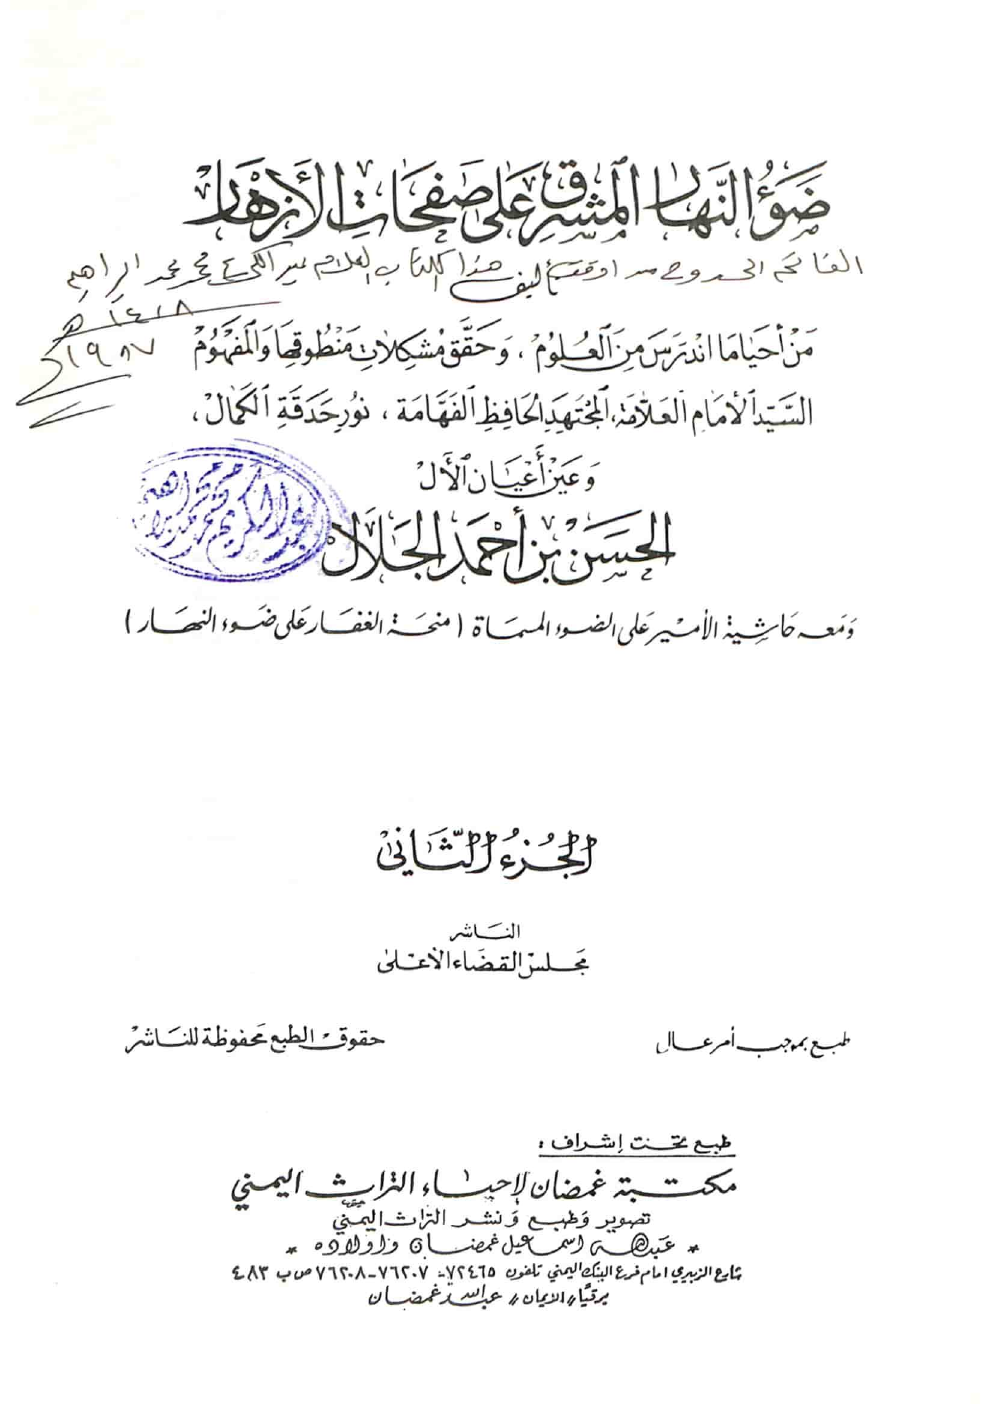 ضَوْءُ النَّهَارِ المُشْرِق عَلَى صَفَحَاتِ الأَزْهَار
هذا الكتاب
١٤١٨ هـ
١٩٨٧
مَنْ أَحْيَا مَا انْدَرَسَ مِنَ العُلُومْ ، وَحَقَّقَ مُشْكِلَاتِ مَنْطُوقِهَا وَالمَفْهُومْ
السَّيِّد الأمَام العَلّامَة، المُجْتَهِدِ الحَافِظِ الفَهَّامَة ، نُورِ حَدَقَةِ الكَمَال ،
وَعَيْن أَعْيَان الآلْ
الحَسَنْ بن أَحْمَد الجَلَال
عبدالكريم محمد
وَمَعه حَاشِية الأمير على الضوء المسماة ( منحة الغفار على ضَوء النهار )
الجُزءُ الثَّانىْ
النَاشر
مَجلسْ القضَاء الأعلى
طبع بموجب أمر عال
حقوق الطبع مَحفوظة للناشرْ
طبع تحت إشراف :
مكتبة غمضان لإحياء التراث اليمني
تصوير وَطبع وَنشر التراث اليمنيْ
* عَبدالله اسماعيل غمضان وأولاده *
شارع الزبيري امام فرع البنك اليمني تلفون ٧٢٤٦٥ - ٧٦٢٠٧ - ٧٦٢٠٨ ص ب ٤٨٣
برقيًا // الايمان // عبدالله غمضان